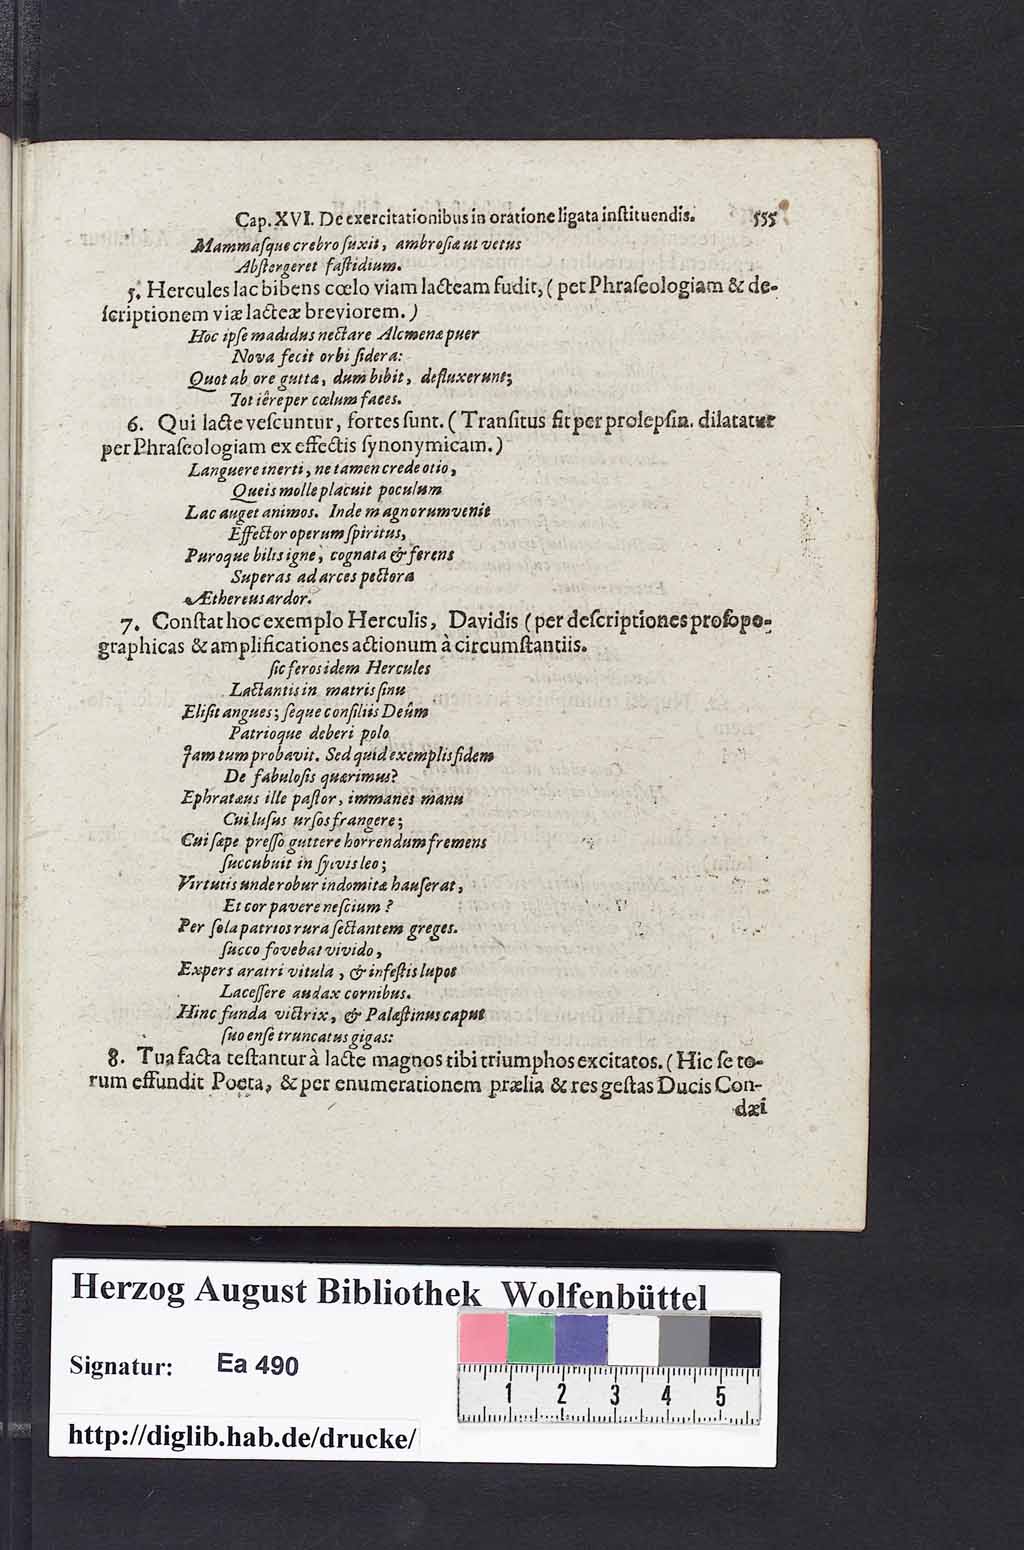 Cap. XVI. De exercitationibus in oratione ligata inſtituendis. 555
Mammaſque crebro ſuxit, ambroſiæ ut vetus
Abſtergeret faſtidium.
5. Hercules lac bibens cœlo viam lacteam fudit, (per Phraſeologiam & de-
ſcriptionem viæ lacteæ breviorem.)
Hoc ipſe madidus nectare Alcmenæ puer
Nova fecit orbi ſidera:
Quot ab ore guttæ, dum bibit, defluxerunt;
Tot iêre per cœlum faces.
6. Qui lacte veſcuntur, fortes ſunt. (Tranſitus fit per prolepſin. dilatatur
per Phraſeologiam ex effectis ſynonymicam.)
Languere inerti, ne tamen crede otio,
Queis molle placuit poculum
Lac auget animos. Inde magnorum venit
Effector operum ſpiritus,
Puroque bilis igne, cognata & ferens
Superas ad arces pectora
Æthereus ardor.
7. Conſtat hoc exemplo Herculis, Davidis (per deſcriptiones proſopo-
graphicas & amplificationes actionum à circumſtantiis.
ſic feros idem Hercules
Lactantis in matris ſinu
Eliſit angues; ſeque conſiliis Deûm
Patrioque deberi polo
Jam tum probavit. Sed quid exemplis fidem
De fabuloſis quærimus?
Ephratæus ille paſtor, immanes manu
Cui luſus urſos frangere;
Cui ſæpe preſſo guttere horrendum fremens
ſuccubuit in ſylvis leo;
Virtutis unde robur indomitæ hauſerat,
Et cor pavere neſcium?
Per ſola patrios rura ſectantem greges.
ſucco fovebat vivido,
Expers aratri vitula, & infeſtis lupos
Laceſſere audax cornibus.
Hinc funda victrix, & Palæſtinus caput
ſuo enſe truncatus gigas:
8. Tua facta teſtantur à lacte magnos tibi triumphos excitatos. (Hic ſe to-
rum effundit Poeta, & per enumerationem prælia & res geſtas Ducis Con-
dæi
Herzog August Bibliothek Wolfenbüttel
Signatur: Ea 490
1 2 3 4 5
http://diglib.hab.de/drucke/